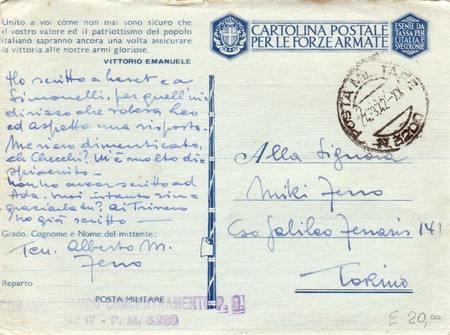 Unito a voi come non mai sono sicuro che
il vostro valore ed il patriottismo del popolo
italiano sapranno ancora una volta assicurare
la vittoria alle nostre armi gloriose.
VITTORIO EMANUELE
CARTOLINA POSTALE
PER LE FORZE ARMATE
ESENTE DA
TASSA PER
L'ITALIA E
SUE COLONIE
POSTA MILITARE
Ho scritto a
Simonelli, per quell'in-
dirizzo che voleva Leo
ed aspetto una risposta.
Me n'ero dimenticato,
e Checchi? M'è molto di-
spiaciuto
non ho ancora scritto ad
Ada. Vuoi intanto rin-
graziarla tu? ai
ho già scritto
Alla Signora
Miki Ferro
Cso Galileo Ferraris 141
Torino
Grado, Cognome e Nome del mittente:
Ten. Alberto M.
Ferro
Reparto
POSTA MILITARE
CONCENTRAMENTO P. G.
N. 17 - P. M. 3200
£ 20,00